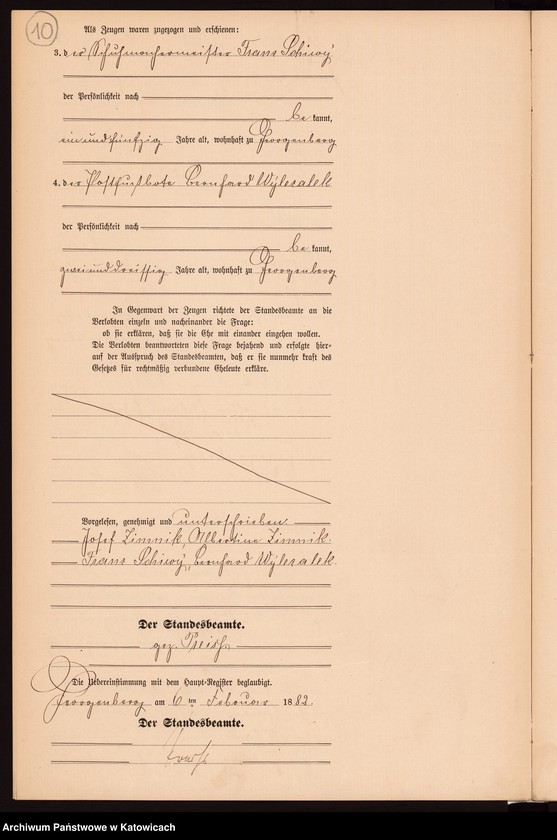 10
Als Zeugen waren zugezogen und erschienen:
3. der Schuhmachermeister Franz Schiwy
der Persönlichkeit nach
be kannt,
einundfünfzig Jahre alt, wohnhaft zu Georgenberg
4. der Postfußbote Bernhard Wylezalek
der Persönlichkeit nach
be kannt,
zweiunddreissig Jahre alt, wohnhaft zu Georgenberg
In Gegenwart der Zeugen richtete der Standesbeamte an die
Verlobten einzeln und nacheinander die Frage:
ob sie erklären, daß sie die Ehe mit einander eingehen wollen.
Die Verlobten beantworteten diese Frage bejahend und erfolgte hier-
auf der Ausspruch des Standesbeamten, daß er sie nunmehr kraft des
Gesetzes für rechtmäßig verbundene Eheleute erkläre.
Vorgelesen, genehmigt und unterschrieben
Josef Zimnik, Albertine Zimnik.
Franz Schiwy, Bernhard Wylezalek.
Der Standesbeamte.
gez.
Die Uebereinstimmung mit dem Haupt-Register beglaubigt.
Georgenberg am 6ten Februar 1882.
Der Standesbeamte.
Archiwum Państwowe w Katowicach